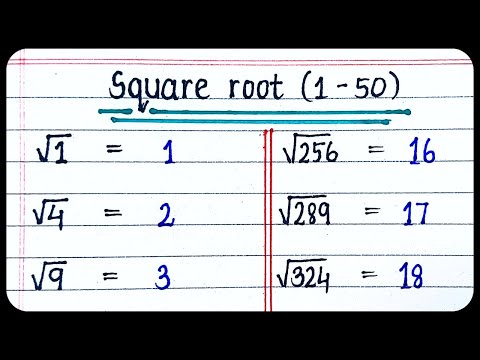 Square root (1-50)
√1 = 1
√4 = 2
√9 = 3
√256 = 16
√289 = 17
√324 = 18